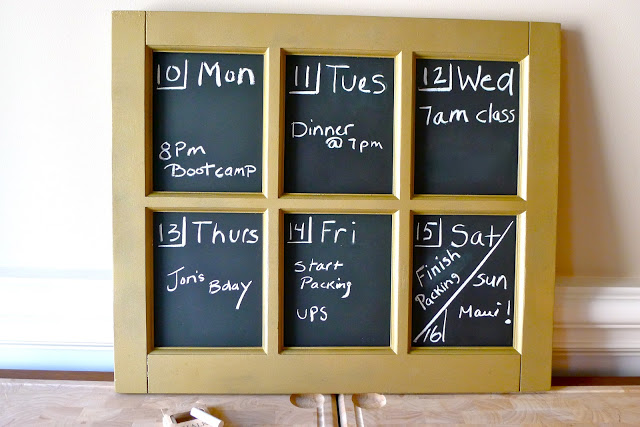 10 Mon
8pm
Bootcamp
11 Tues
Dinner
@ 7pm
12 Wed
7am class
13 Thurs
Jon's Bday
14 Fri
Start
Packing
UPS
15 Sat
Finish
Packing
16
Sun
Maui!